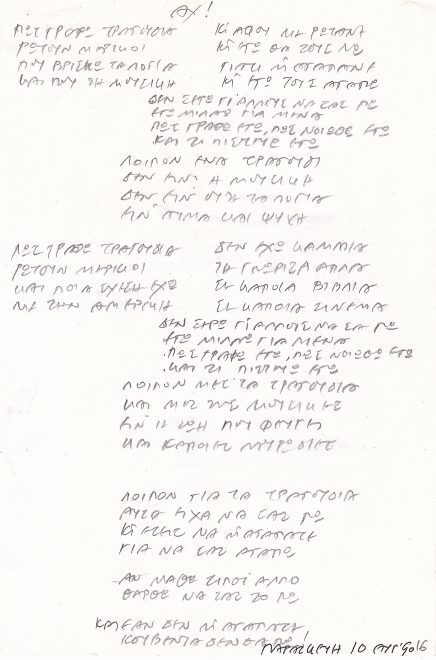 ΑΧ!
ΠΩΣ ΓΡΑΦΩ ΤΡΑΓΟΥΔΙΑ
ΡΩΤΟΥΝ ΜΕΡΙΚΟΙ
ΠΟΥ ΒΡΙΣΚΩ ΤΑ ΛΟΓΙΑ
ΚΑΙ ΠΟΥ ΤΗ ΜΟΥΣΙΚΗ
ΚΙ ΑΦΟΥ ΜΕ ΡΩΤΑΝΕ
ΚΙ ΕΓΩ ΘΑ ΤΟΥΣ ΠΩ
ΓΙΑΤΙ Μ' ΑΓΑΠΑΝΕ
ΚΙ ΕΓΩ ΤΟΥΣ ΑΓΑΠΩ
ΔΕΝ ΞΕΡΩ ΓΙ ΑΛΛΟΥΣ ΝΑ ΣΑΣ ΠΩ
ΕΓΩ ΜΙΛΑΩ ΓΙΑ ΜΕΝΑ
ΠΩΣ ΓΡΑΦΩ ΕΓΩ, ΠΩΣ ΝΟΙΩΘΩ ΕΓΩ
ΚΑΙ ΤΙ ΠΙΣΤΕΥΩ ΕΓΩ
ΛΟΙΠΟΝ ΕΝΑ ΤΡΑΓΟΥΔΙ
ΔΕΝ ΕΙΝ' Η ΜΟΥΣΙΚΗ
ΔΕΝ ΕΙΝ' ΟΥΤΕ ΤΑ ΛΟΓΙΑ
ΕΙΝ' ΑΙΜΑ ΚΑΙ ΨΥΧΗ
ΠΩΣ ΓΡΑΦΩ ΤΡΑΓΟΥΔΙΑ
ΡΩΤΟΥΝ ΜΕΡΙΚΟΙ
ΚΑΙ ΠΟΙΑ ΣΧΕΣΗ ΕΧΩ
ΜΕ ΤΗΝ ΑΜΕΡΙΚΗ
ΔΕΝ ΕΧΩ ΚΑΜΜΙΑ
ΤΗ ΓΝΩΡΙΣΑ ΑΠΛΑ
ΣΕ ΚΑΠΟΙΑ ΒΙΒΛΙΑ
ΣΕ ΚΑΠΟΙΑ ΣΙΝΕΜΑ
ΔΕΝ ΞΕΡΩ ΓΙ ΑΛΛΟΥΣ ΝΑ ΣΑΣ ΠΩ
ΕΓΩ ΜΙΛΑΩ ΓΙΑ ΜΕΝΑ
ΠΩΣ ΓΡΑΦΩ ΕΓΩ, ΠΩΣ ΝΟΙΩΘΩ ΕΓΩ
ΚΑΙ ΤΙ ΠΙΣΤΕΥΩ ΕΓΩ
ΛΟΙΠΟΝ ΜΕΣ' ΤΑ ΤΡΑΓΟΥΔΙΑ
ΚΑΙ ΜΕΣ ΤΙΣ ΜΟΥΣΙΚΕΣ
ΕΙΝ' Η ΖΩΗ ΠΟΥ ΦΕΥΓΕΙ
ΚΑΙ ΚΑΠΟΙΕΣ ΜΥΡΩΔΙΕΣ
ΛΟΙΠΟΝ ΓΙΑ ΤΑ ΤΡΑΓΟΥΔΙΑ
ΑΥΤΑ ΕΙΧΑ ΝΑ ΣΑΣ ΠΩ
ΚΙ ΕΣΕΙΣ ΝΑ Μ' ΑΓΑΠΑΤΕ
ΓΙΑ ΝΑ ΣΑΣ ΑΓΑΠΩ
ΑΝ ΜΑΘΩ ΚΑΤΙ ΑΛΛΟ
ΘΑΡΘΩ ΝΑ ΣΑΣ ΤΟ ΠΩ
ΚΑΙ ΕΑΝ ΔΕΝ Μ' ΑΓΑΠΑΤΕ
ΚΟΥΒΕΝΤΑ ΔΕΝ ΘΑ ΠΩ!
ΠΑΡΑΣΚΕΥΗ 10